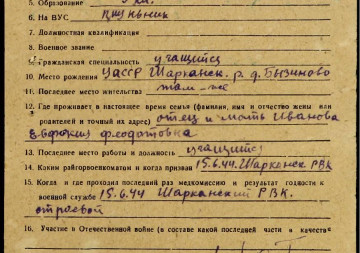 5. Образование
6. На ВУС
7. Должностная квалификация
8. Военное звание
9. Гражданская специальность учащийся
10. Место рождения УАССР Шарканск. р. д. Бызиново
11. Последнее место жительства там-же
12. Где проживает в настоящее время семья (фамилия, имя и отчество жены или
родителей и точный их адрес) отец и мать Иванова
Федотовна
13. Последнее место работы и должность учащийся
14. Каким райгорвоенкоматом и когда призван 15.6.44 Шарканск РВК
15. Когда и где проходил последний раз медкомиссию и результат годности к
военной службе 15.6.44 Шарканский РВК.
строевой
16. Участие в Отечественной войне (в составе какой последней части и качестве